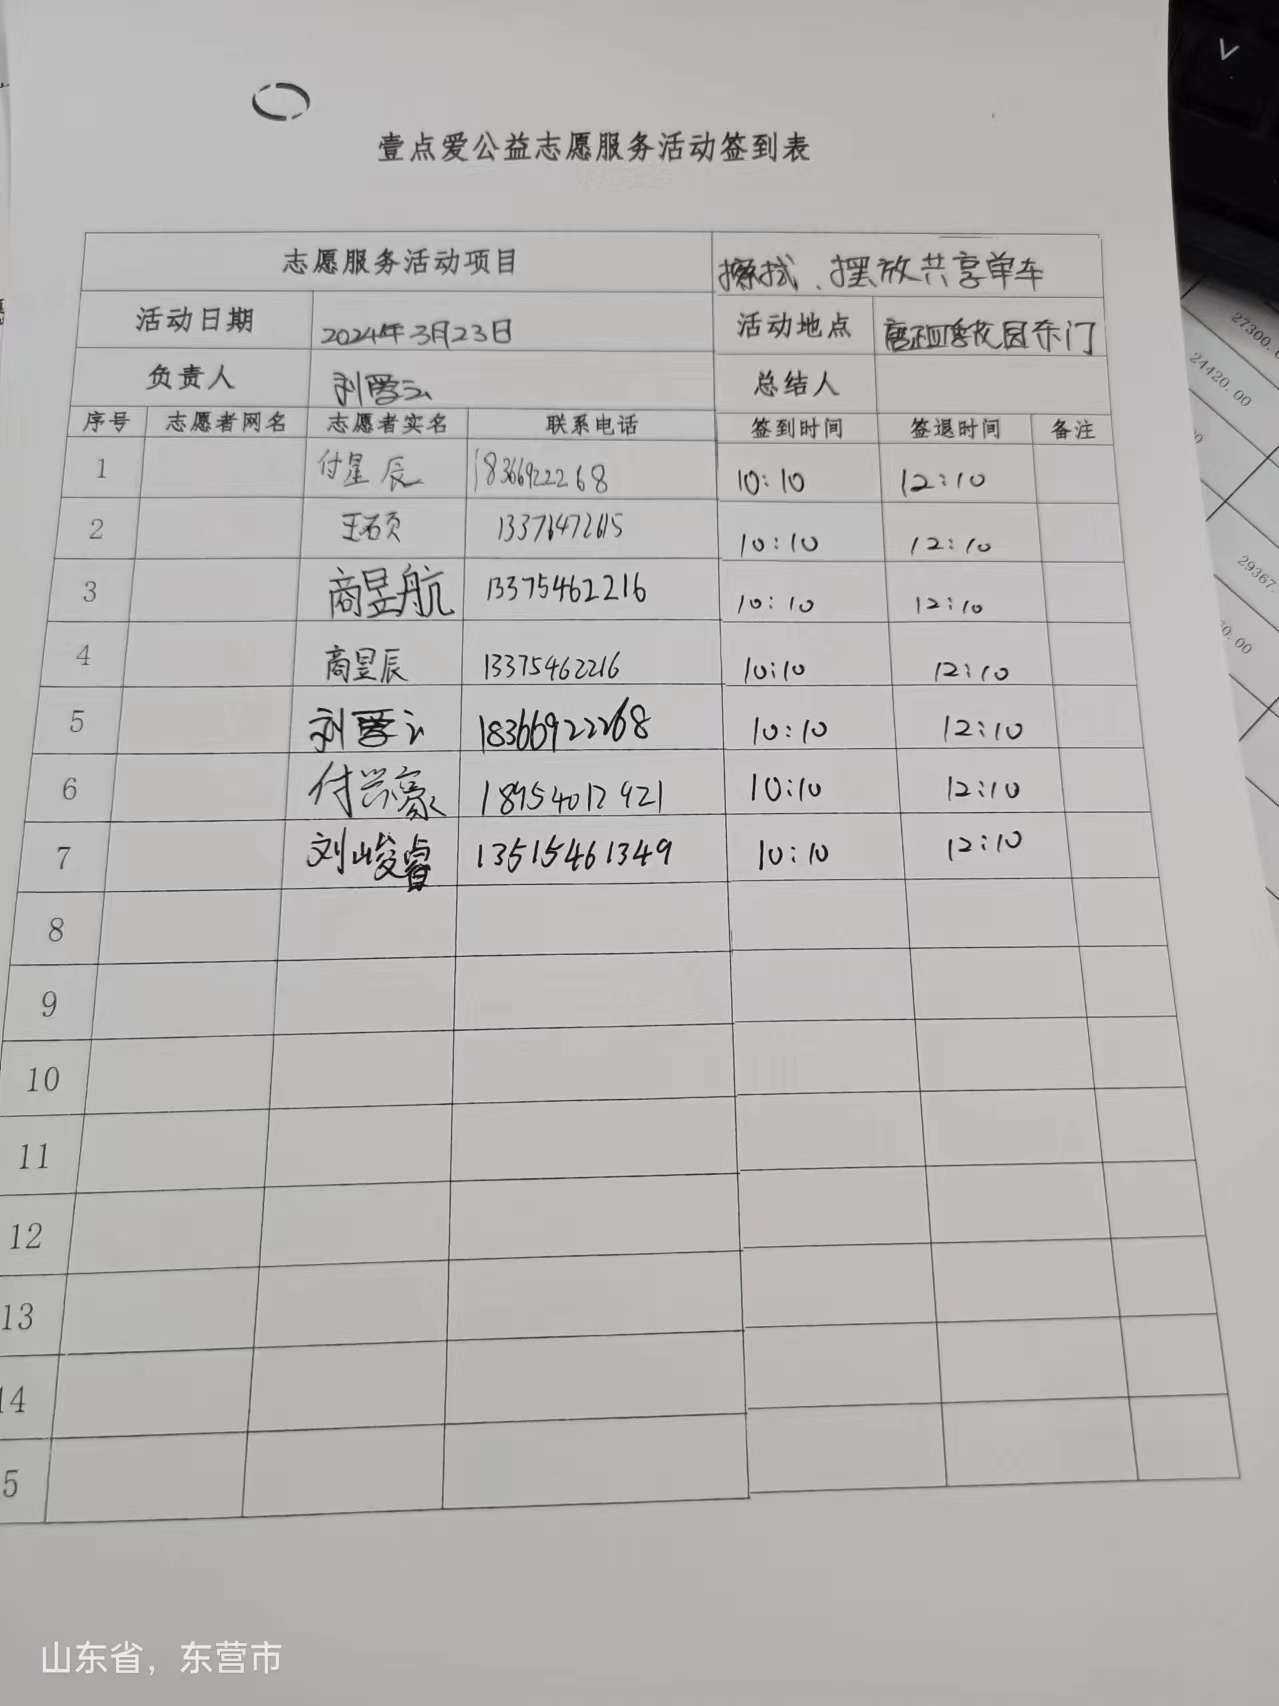 壹点爱公益志愿服务活动签到表
志愿服务活动项目 擦拭、摆放共享单车
活动日期 2024年3月23日 活动地点 园东门
负责人 刘爱云 总结人
序号 志愿者网名 志愿者实名 联系电话 签到时间 签退时间 备注
1 付星辰 18366922268 10:10 12:10
2 王硕 13376472615 10:10 12:10
3 商昱航 13375462216 10:10 12:10
4 商昱辰 13375462216 10:10 12:10
5 刘爱云 18366922268 10:10 12:10
6 付兴豪 18954017921 10:10 12:10
7 刘峻睿 13515461349 10:10 12:10
8
9
10
11
12
13
14
5
27300.
24420.00
29367.
0.00
山东省，东营市